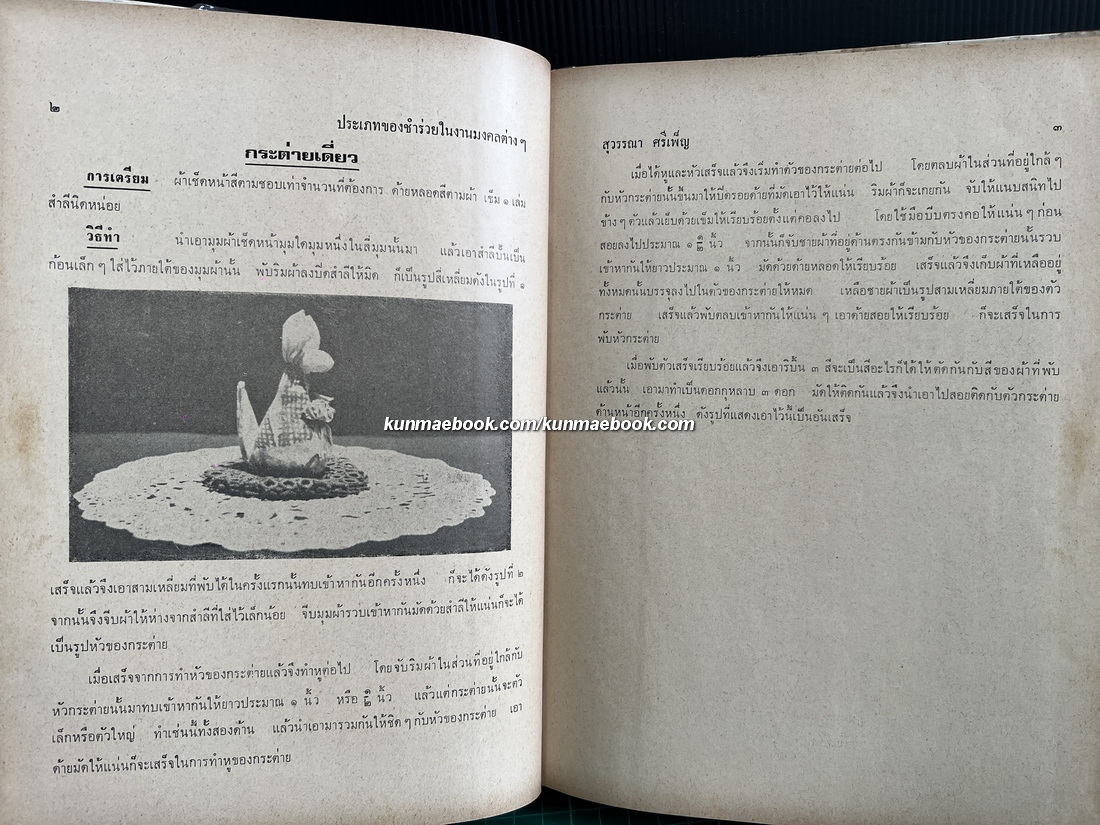 ๒
ประเภทของชำร่วยในงานมงคลต่าง ๆ
กระต่ายเดี่ยว
การเตรียม ผ้าเช็ดหน้าสีตามชอบเท่าจำนวนที่ต้องการ ด้ายหลอดสีตามผ้า เข็ม ๑ เล่ม
สำลีนิดหน่อย
วิธีทำ นำเอามุมผ้าเช็ดหน้ามุมใดมุมหนึ่งในสี่มุมนั้นมา แล้วเอาสำลีปั้นเป็น
ก้อนเล็ก ๆ ใส่ไว้ภายใต้ของมุมผ้านั้น พับริมผ้าลงปิดสำลีให้มิด ก็เป็นรูปสี่เหลี่ยมดังในรูปที่ ๑
kunmaebook.com/kunmaebook.com
เสร็จแล้วจึงเอาสามเหลี่ยมที่พับได้ในครั้งแรกนั้นทบเข้าหากันอีกครั้งหนึ่ง ก็จะได้ดังรูปที่ ๒
จากนั้นจึงจีบผ้าให้ห่างจากสำลีที่ใส่ไว้เล็กน้อย จีบมุมผ้ารวบเข้าหากันมัดด้วยสำลีให้แน่นก็จะได้
เป็นรูปหัวของกระต่าย
เมื่อเสร็จจากการทำหัวของกระต่ายแล้วจึงทำหูต่อไป โดยจับริมผ้าในส่วนที่อยู่ใกล้กับ
หัวกระต่ายนั้นมาทบเข้าหากันให้ยาวประมาณ ๑ นิ้ว หรือ ๑/๒ นิ้ว แล้วแต่กระต่ายนั้นจะตัว
เล็กหรือตัวใหญ่ ทำเช่นนี้ทั้งสองด้าน แล้วนำเอามารวมกันให้ชิด ๆ กับหัวของกระต่าย เอา
ด้ายมัดให้แน่นก็จะเสร็จในการทำหูของกระต่าย
สุวรรณา ศรีเพ็ญ
๓
เมื่อได้หูและหัวเสร็จแล้วจึงเริ่มทำตัวของกระต่ายต่อไป โดยตลบผ้าในส่วนที่อยู่ใกล้ ๆ
กับหัวกระต่ายนั้นขึ้นมาให้ปิดรอยด้ายที่มัดเอาไว้ให้แน่น ริมผ้าก็จะเกยกัน จับให้แนบสนิทไป
ข้าง ๆ ตัวแล้วเย็บด้วยเข็มให้เรียบร้อยตั้งแต่คอลงไป โดยใช้มือบีบตรงคอให้แน่น ๆ ก่อน
สอยลงไปประมาณ ๑ ๑/๒ นิ้ว จากนั้นก็จับชายผ้าที่อยู่ด้านตรงกันข้ามกับหัวของกระต่ายนั้นรวบ
เข้าหากันให้ยาวประมาณ ๑ นิ้ว มัดด้วยด้ายหลอดให้เรียบร้อย เสร็จแล้วจึงเก็บผ้าที่เหลืออยู่
ทั้งหมดนั้นบรรจุลงไปในตัวของกระต่ายให้หมด เหลือชายผ้าเป็นรูปสามเหลี่ยมภายใต้ของตัว
กระต่าย เสร็จแล้วพับตลบเข้าหากันให้แน่น ๆ เอาด้ายสอยให้เรียบร้อย ก็จะเสร็จในการ
พับหัวกระต่าย
เมื่อพับตัวเสร็จเรียบร้อยแล้วจึงเอาริบบิ้น ๓ สีจะเป็นสีอะไรก็ได้ให้ตัดกันกับสีของผ้าที่พับ
แล้วนั้น เอามาทำเป็นดอกกุหลาบ ๓ ดอก มัดให้ติดกันแล้วจึงนำเอาไปสอยติดกับตัวกระต่าย
ด้านหน้าอีกครั้งหนึ่ง ดังรูปที่แสดงเอาไว้นี้เป็นอันเสร็จ